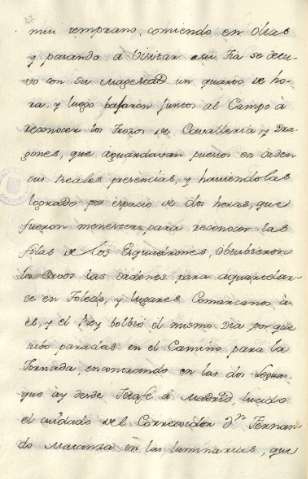 mui temprano, comiendo en Olias
y parando a Visitar a su Tia se detu-
vo con su Magestad un quarto de ho-
ra, y luego pasaron juntos al Campo à
reconocer los Trozos de Cavalleria, y Dra-
gones, que aguardavan puestos en orden
sus Reales presencias, y haviendolas
logrado por espacio de dos horas, que
fueron menester para reconocer las
filas de los Esquadrones, distribuieron
las ordenes para aquartelar-
se en Toledo, y lugares Comarcanos à
él, y el Rey bolbió el mismo dia por que
ubo paradas en el Camino para la
Jornada, encontrando en las dos leguas
que ày desde Jetafe à Madrid, lucido
el cuidado del Corregidor Dn Fernan-
do Matanza en las luminarias, que